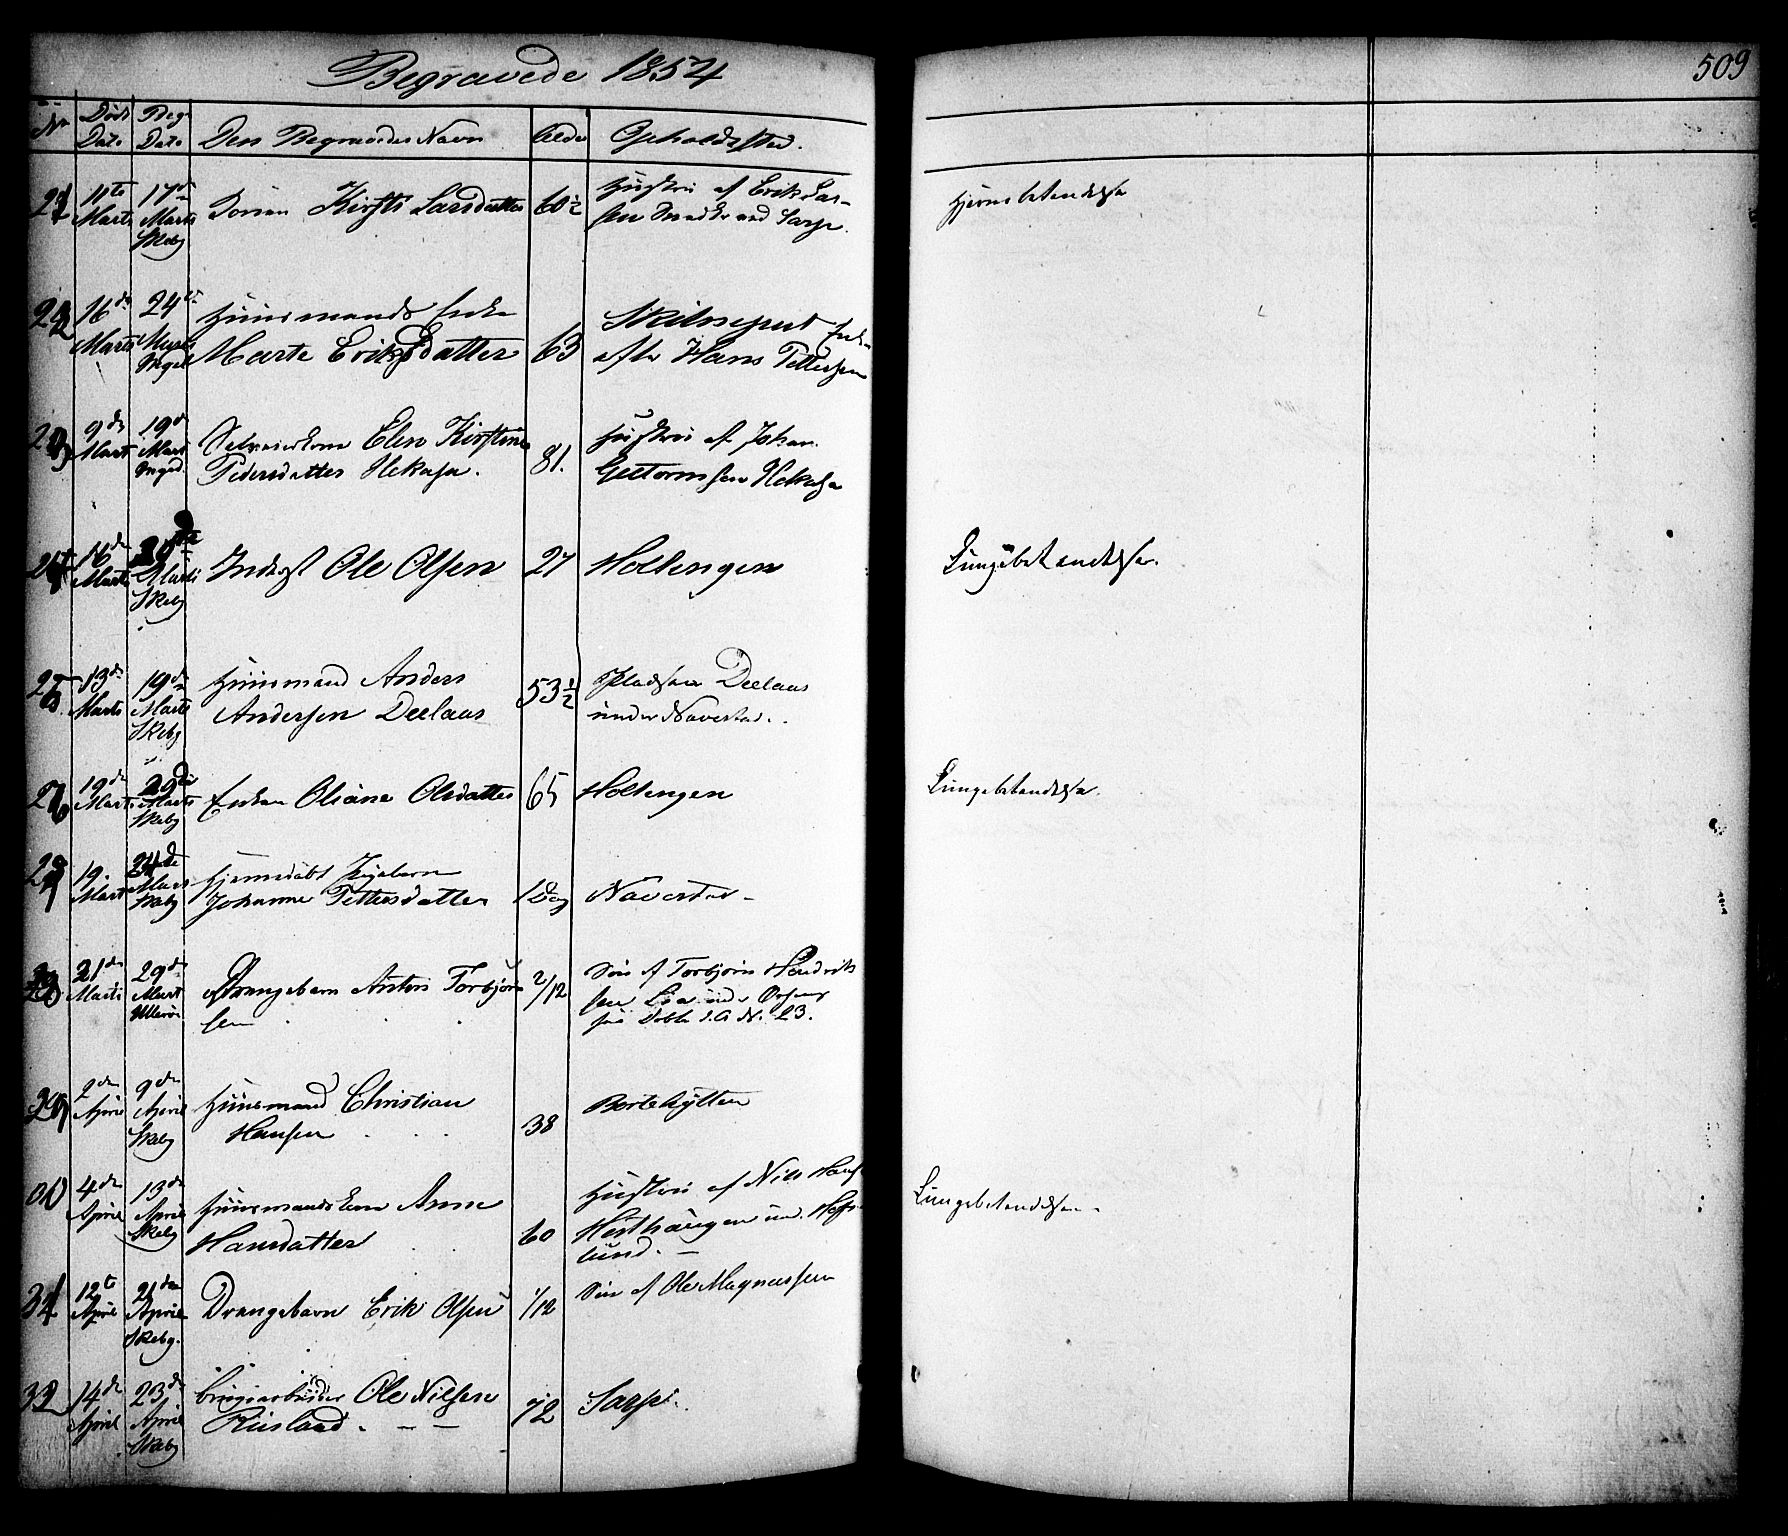 Begravede 1854
509
No
Død Date
Beg. Date
Den Begravedes Navn
Alder
Opholdssted.
21 11te Marts 17de Marts Skebg Kirsti Larsdatter 60½ Hustru af Erik Lar-
sen Sarps.
Hjernebetændelse
22 16de Marts 24de Marts Inged Huusmands Enke
Marte Eriksdatter 63 Enke
after Hans Pettersen
23 9de Marts 19de Marts Inged. Selveierkone Elen Kirstine
Pedersdatter Hekasa. 81. Hustru af Johan
Guttormsen Hekasa
24 16de Marts Marts Skebg Inderst Ole Olsen 27 Holtengen
Lungebetændelse.
25 13de Marts 19de Marts Skebg Huusmand Anders
Andersen Deelaus 53½ Pladsen Deelaus
under Navestad.
26 19de Marts 29de Marts Skebg Enken Oliane Olsdatter 65 Holtengen
Lungebetændelse.
27 19. Marts 24de Marts Skebg Hjemmedøbt Pigebarn
Johanne Pettersdatter 1 Dag Navestad
28 21de Marts 29de Mart Ullerøe Drengebarn Anton Torbjørn
sen 2/12 Søn af Torbjørn Hendrik
sen Lia under
see Døbte d. A. N. 23.
29 2den April 9de April Skebg Huusmand Christian
Hansen 38 Bortehytten
30 4de April 13de April Skebg Huusmandskone Anne
Hansdatter 60 Hustru af Nils Hans
Hesthaugen un. Hafs-
lund.
Lungebetændelse
31 12te April 21de April Skebg. Drengebarn Erik Olsen 1/12 Søn af Ole Magnussen
32 14de April 23de April Skebg Brugsarbeider Ole Nilsen
Riisland. 72 Sarps.